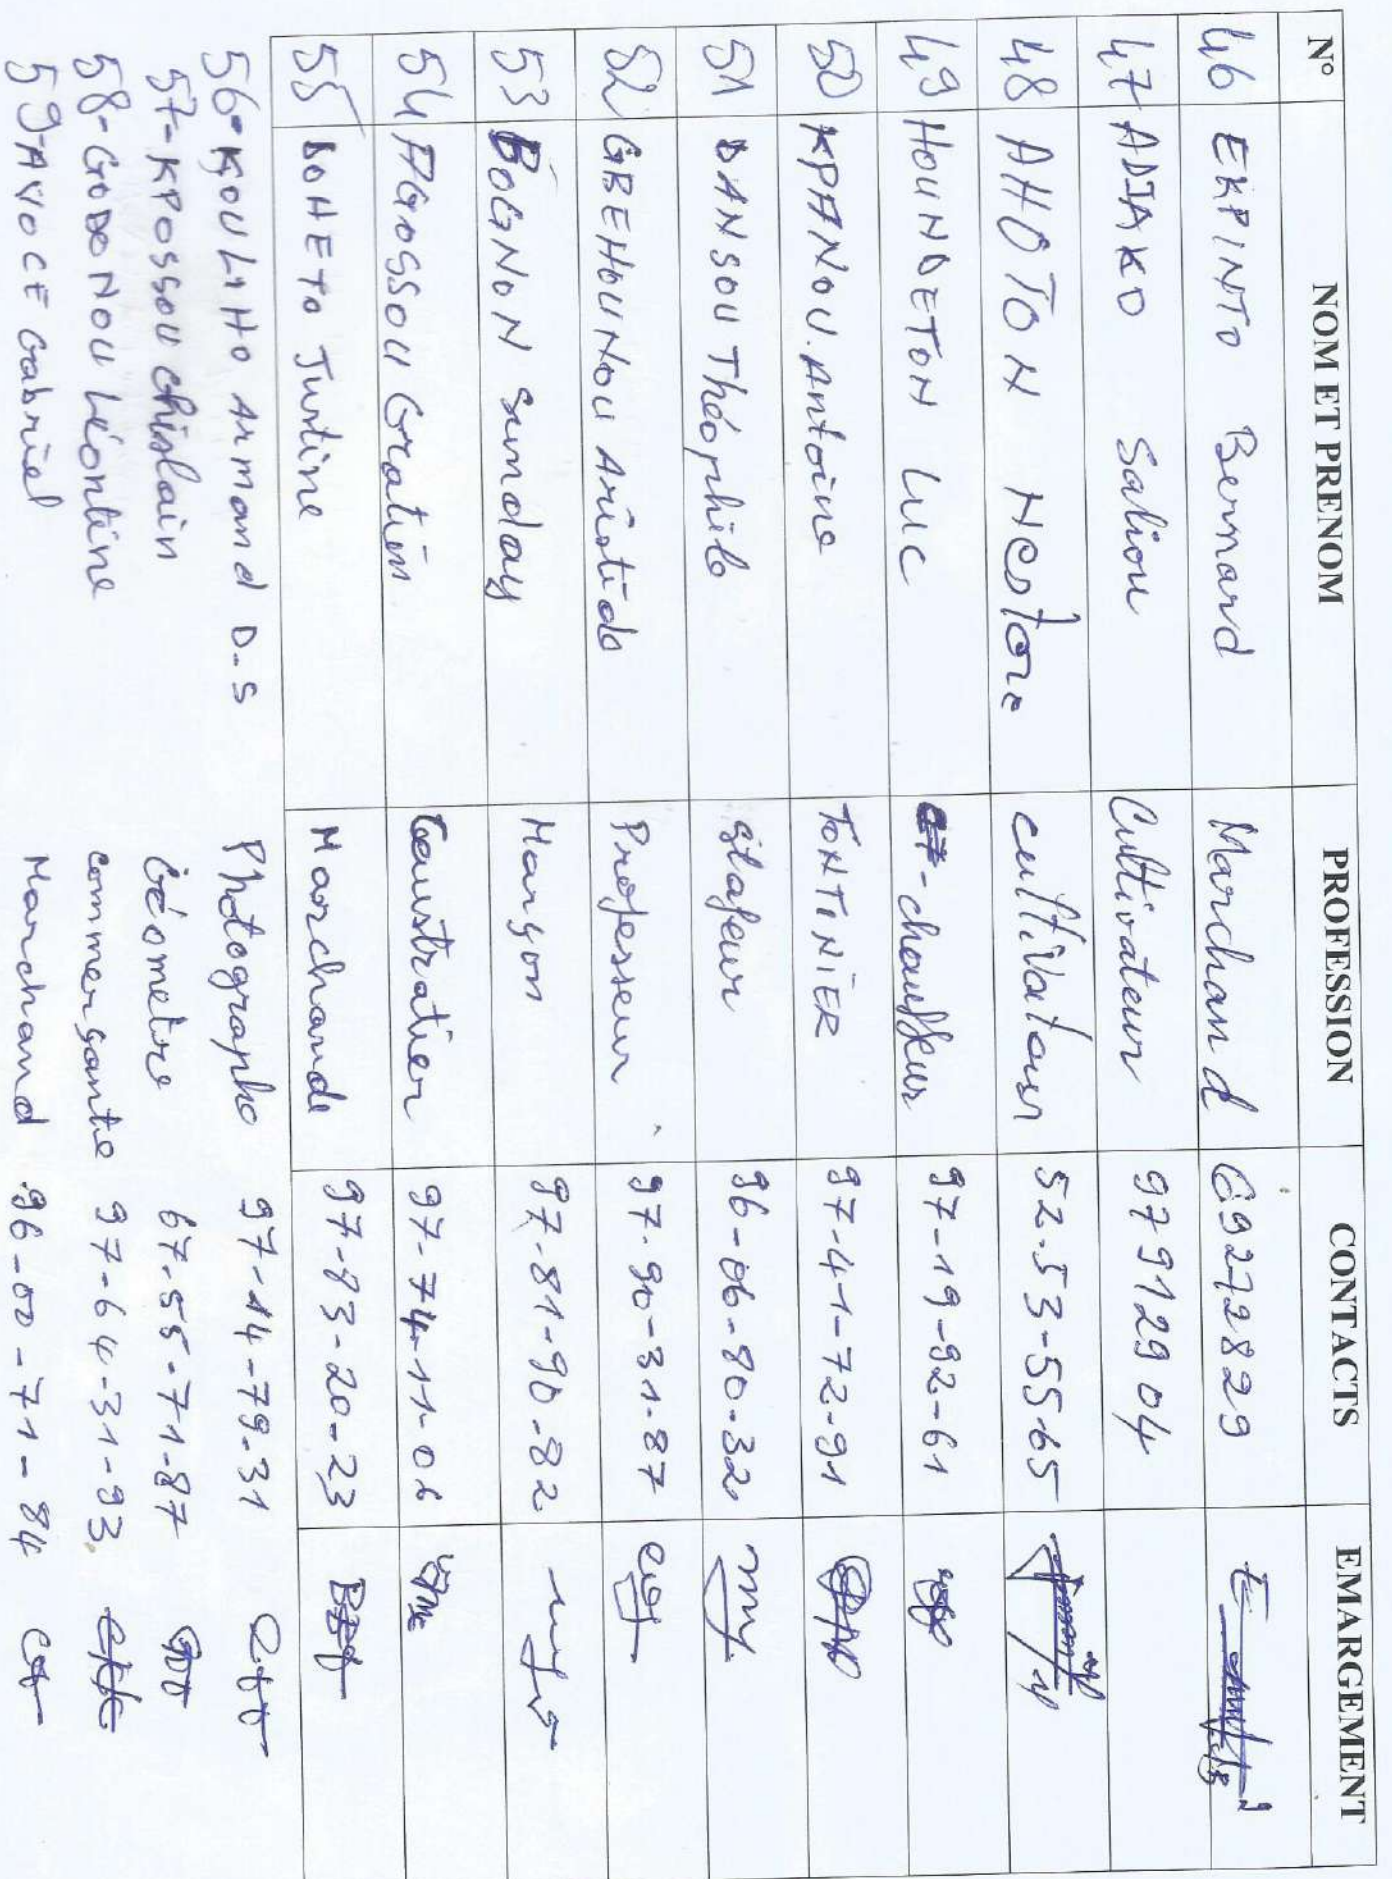 N° NOM ET PRENOM PROFESSION CONTACTS EMARGEMENT
46 EKPINTO Bernard Marchand 69272829
47 ADJAKO Saliou Cultivateur 97912904
48 AHOTON Nestore cultivateur 52-53-55-65
49 HOUNDETON Luc chauffeur 97-19-92-61
50 KPANOU Antoine TONTINIER 97-41-72-91
51 DANSOU Théophile 96-06-80-32
52 GBEHOUNOU Aristide Professeur 97-90-31-87
53 BOGNON Sunday Marçon 97-81-90-82
54 AGOSSOU Gratien 97-74-11-06
55 DOHETO Justine Marchande 97-83-20-23
56- Armand D.S Photographe 97-14-79-31
57- KPOSSOU Ghislain Géometre 67-55-71-87
58- GODONOU Léontine commerçante 97-64-31-93
59- AVOCE Gabriel Marchand 96-00-71-84